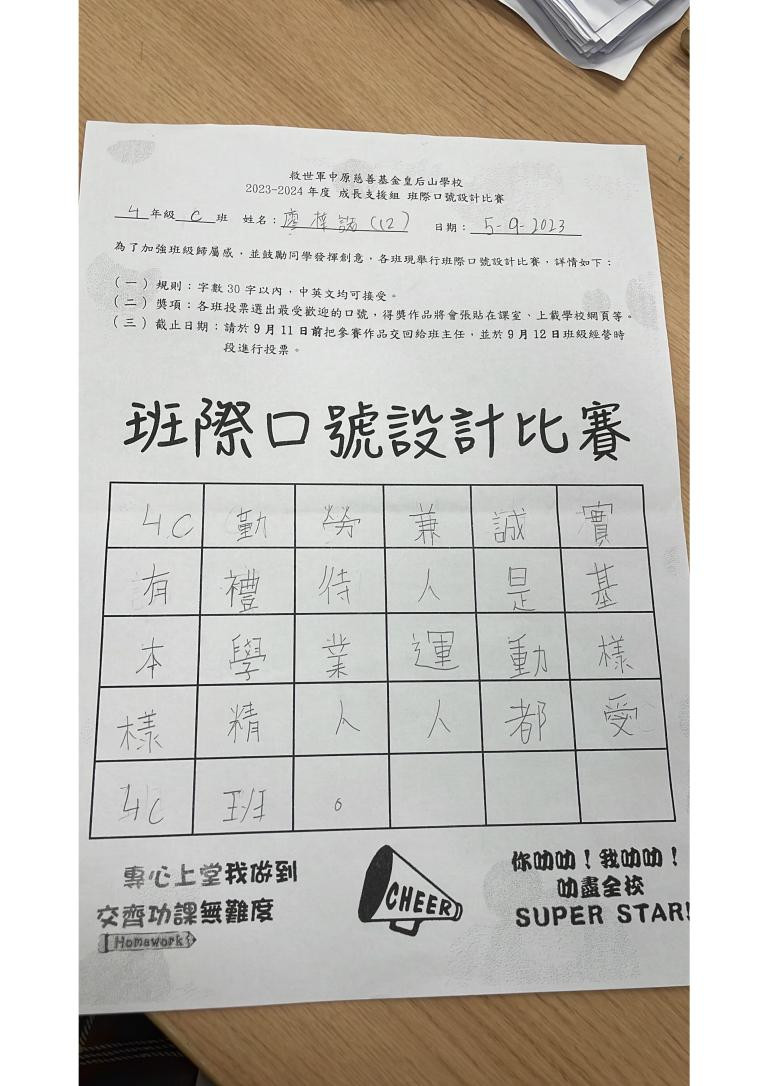 救世軍中原慈善基金皇后山學校
2023-2024 年度 成長支援組 班際口號設計比賽
4 年級 C 班 姓名：廖梓諾(12) 日期：5-9-2023
為了加強班級歸屬感，並鼓勵同學發揮創意，各班現舉行班際口號設計比賽，詳情如下：
（一）規則：字數 30 字以內，中英文均可接受。
（二）獎項：各班投票選出最受歡迎的口號，得獎作品將會張貼在課室、上載學校網頁等。
（三）截止日期：請於 9 月 11 日前把參賽作品交回給班主任，並於 9 月 12 日班級經營時
段進行投票。
班際口號設計比賽
4C 勤 勞 兼 誠 實
有 禮 待 人 是 基
本 學 業 運 動 樣
樣 精 人 人 都 愛
4C 班 。
專心上堂我做到
交齊功課無難度
Homework
CHEER
你叻叻！我叻叻！
叻盡全校
SUPER STAR!